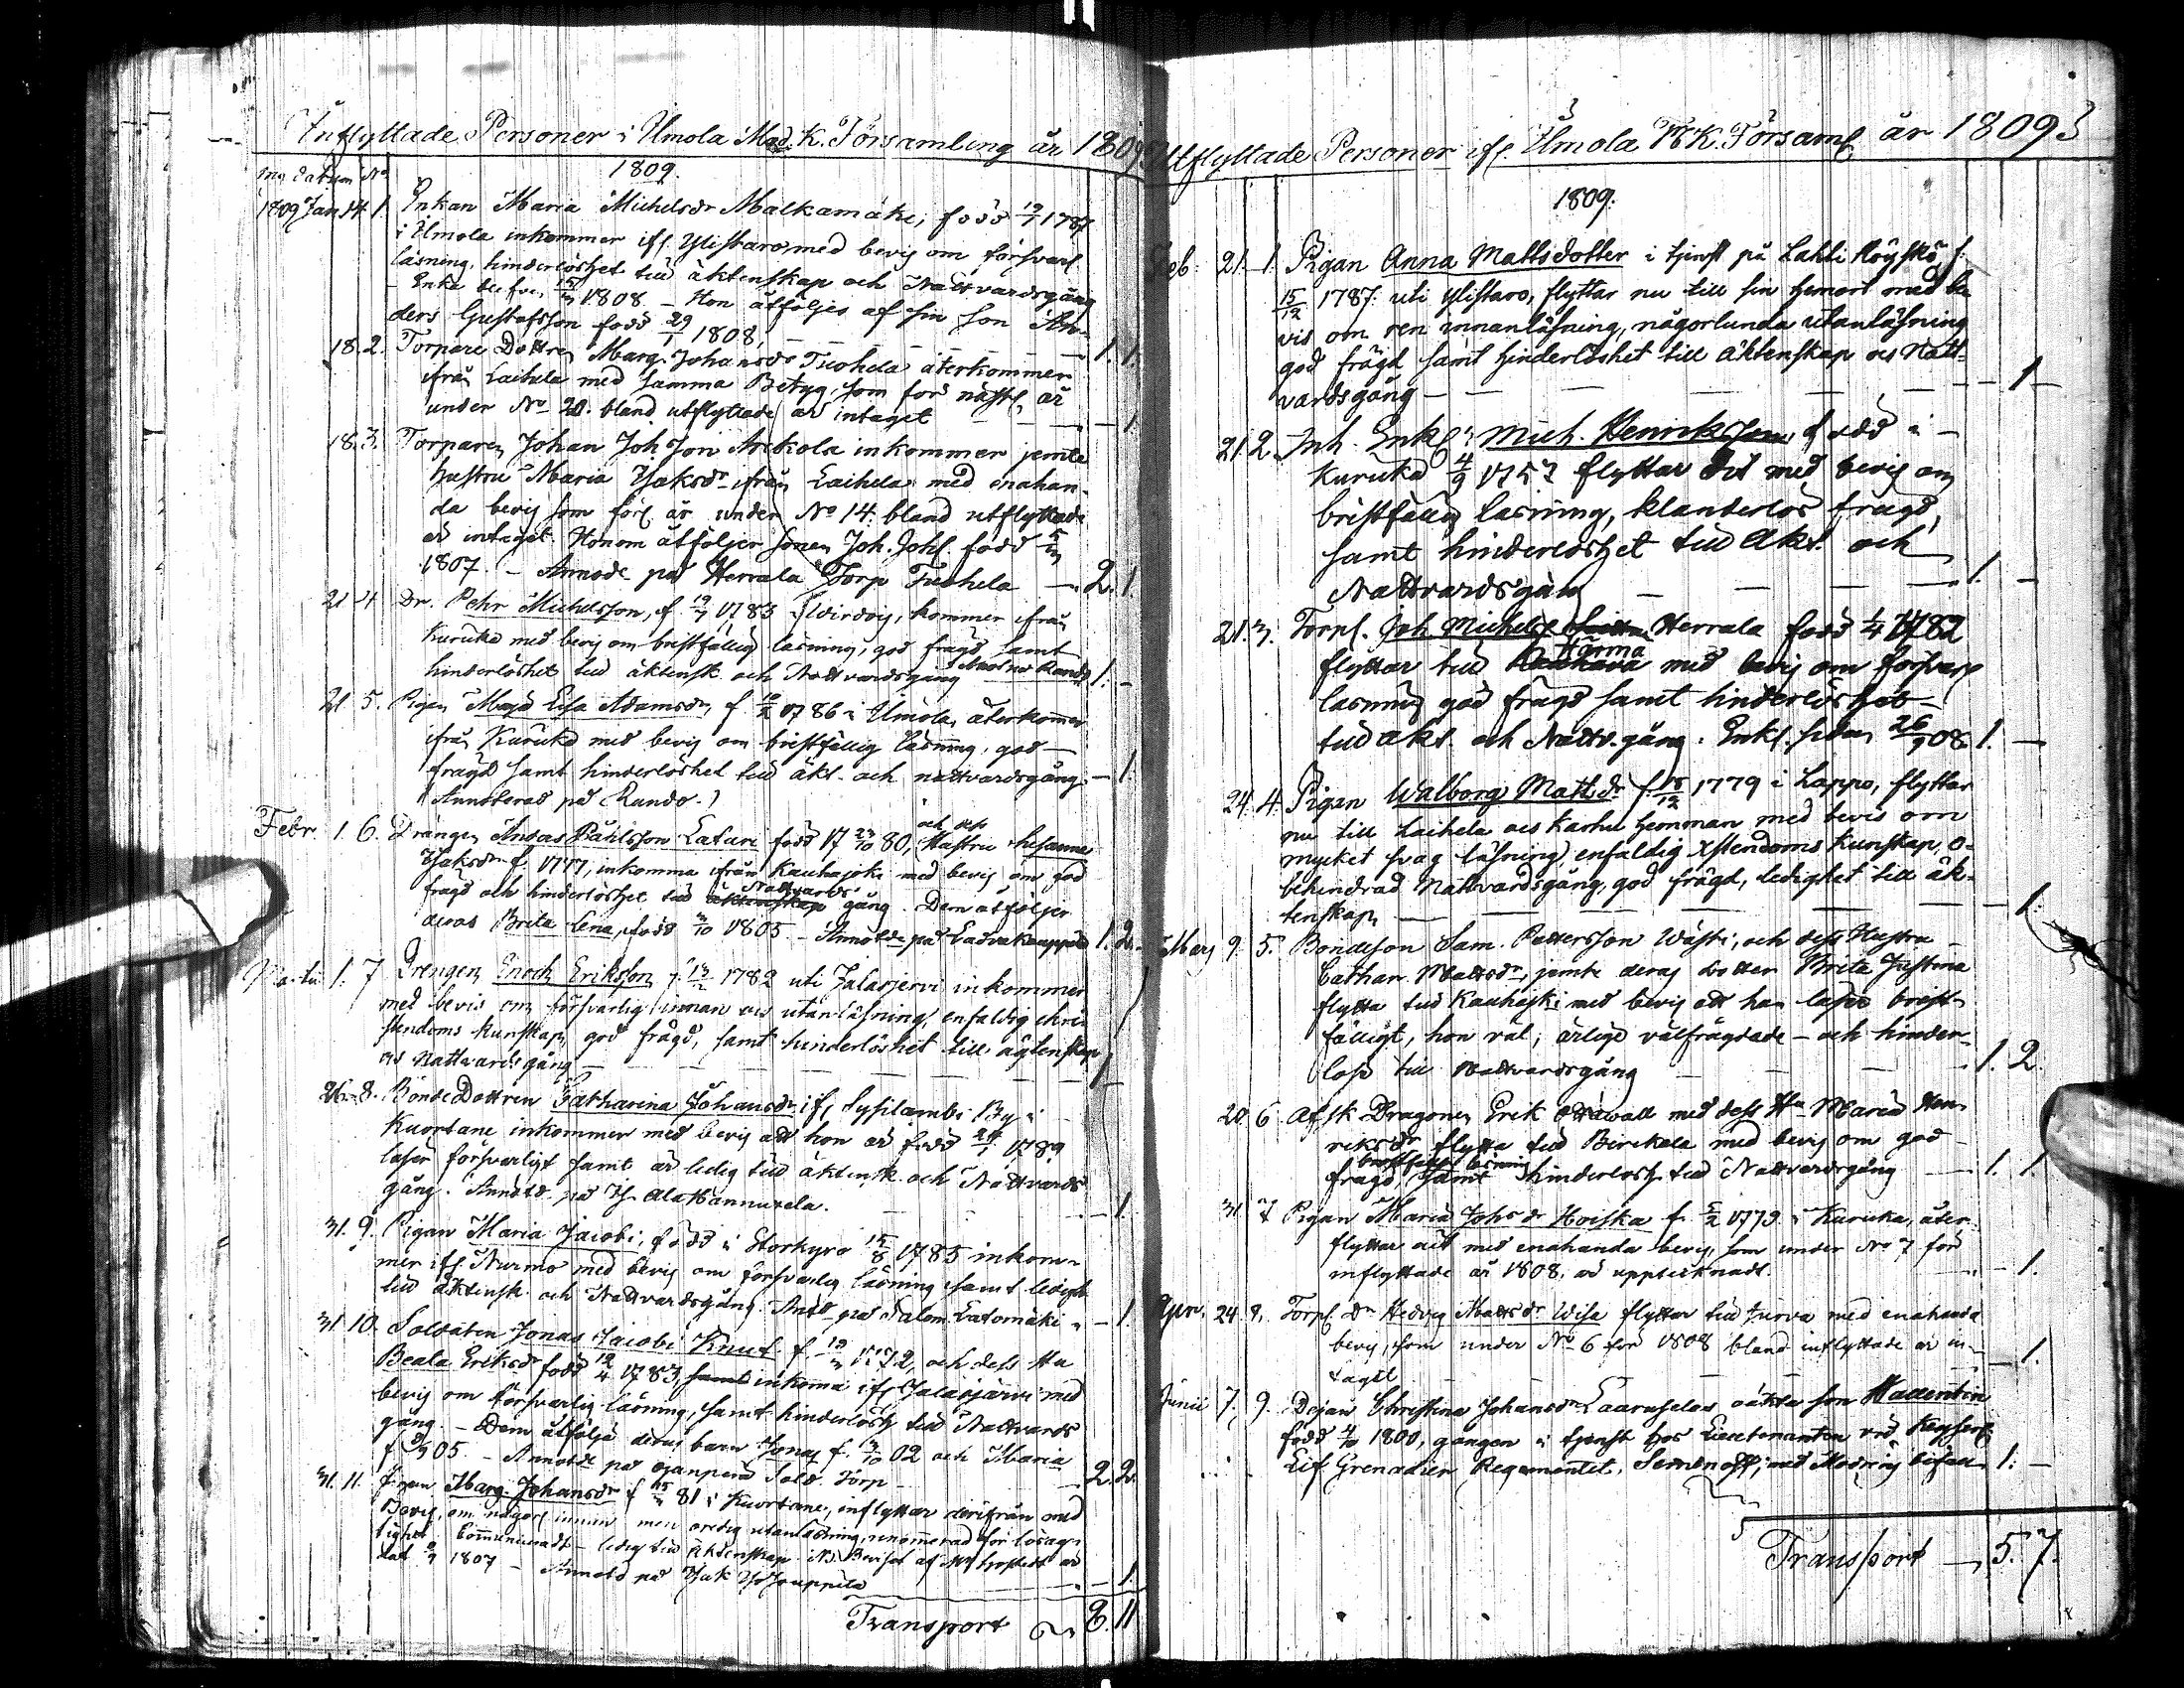 Inflyttade Personer i Ilmola Mod. K. Församling år 1809
Datum No
1809.
1809 Jan 14 1. Enkan Maria Michelsdr Malkamäke, född 19/7 1787
i Ilmola inkommer ifr. Ylistaro, med bevis om försvarl.
läsning, hinderlöshet till äktenskap och Nattvardsgång
- Enka 1808 - Hon åtföljes af sin son An-
ders Gustafsson född 29/1 1808, 1. 1.
18. 2. Torpare Dottren Marg. Johansdr Tuohela återkommer
ifrån Laihela med samma Betyg, som för näst. år
under No 20. bland utflyttade är intaget - 1.
18. 3. Torparen Johan Joh.Son Arkkola inkommer jemte
hustru Maria Isaksdr ifrån Laihela med enahan-
da bevis som förl. år under No 14. bland utflyttade
är intaget. Honom åtföljer sonen Joh. Johs. född
1807. - Annote på Herrala Torp Tuohela - 2. 1.
21 4 Dr. Pehr Michelsson, f. 19/7 1783 i Wirdois, kommer ifrån
Kurikka med bevis om bristfällig läsning, god frägd samt
hinderlöshet till äktensk. och Nattvardsgång 1. -
21 5. Pigan Maja Lisa Adamsdr, f. 1786 i Ilmola, återkommer
ifrån Kurikka med bevis om bristfällig läsning, god
frägd samt hinderlöshet till äkt. och nattvardsgång. - 1.
(Annoterad på Rundo.)
Febr. 1. 6. Drängen Andas Påhlsson Laturi född 17 80, och dess Hustru Susanna
Isaksdr f. 1777, inkomma ifrån Kauhajoki med bevis om god
frägd och hinderlöshet till äktenskap Nattvards gång. Dem åtföljer
deras Brita Lena, född 1805. - Annote på 1. 2.
Martii 1. 7 Drengen Enoch Eriksson f. 1782 uti Jalasjervi inkommer
med bevis om försvarlig innan ock utanläsning, enfaldig chri-
stendoms kunskap, god frägd, samt hinderlöshet till ägtenskap
ock Nattvardsgång - 1 -
26. 8. BondeDottren Catharina Johansdr ifr. Sysilambi By i
Kuortane inkommer med bevis att hon är född 1789
läser försvarligt samt är ledig till äktensk. och Nattvards
gång. Annote på - 1.
31. 9. Pigan Maria Jacobi, född i Storkyro 15/8 1785 inkom-
mer ifr. Nurmo med bevis om försvarlig läsning samt ledight
till äktensk. och Nattvardsgång. Anote på - 1.
31 10. Soldaten Jonas Jacobi Knut f. 1772, och dess Hu
Beata Eriksdr född 12/4 1783, samt inkomma ifr. Jalasjärvi med
bevis om försvarlig läsning, samt hinderlösh. till Nattvards
gång. - Dem åtfölja deras barn Jonas f. 02 och Maria
f. 05. - Annote på Sold. Torp 2. 2.
31. 11. Pigan Marg. Johansdr f. 81 i Kuortane, inflyttar derifrån med
Bevis, om någorl. innan men oredig utanläsning, renommerad för lösag-
tighet. Communicerat - ledig till äktenskap. NB. Beviset af är
dat. 1807 - Annote på - 1.
Transport 8. 11
Utflyttade Personer ifr. Ilmola M.K. Förs﻿aml. år 1809
1809.
Feb: 21. 1. Pigan Anna Mattsdotter i tjenst på Lahti Köyskö f.
15/12 1787. uti Ylistaro, flyttar nu till sin hemort med be-
vis om ren innanläsning, någorlunda utanläsning
god frägd samt hinderlöshet till Äktenskap ock Natt-
vardsgång - 1 -
21. 2. Inh. Enkl. Mich. Henriksson född i
Kurikka 4/9 1757 flyttar dit med bevis om
bristfällig läsning, klanderlös frägd,
samt hinderlöshet till Äkt. och
Nattvardsgång - 1. -
21. 3. Torp. Joh Michels. Herrala född 1/4 1782
flyttar till Härmä med bevis om försvarl.
läsning god frägd samt hinderlöshet
till äkt. och Nattv.gång. Enkl. sedan 26/9 08 1. -
24. 4. Pigan Walborg Mattsdr f. 18/12 1779 i Lappo, flyttar
nu till Laihela ock Karhu hemman med bevis om
mycket svag läsning, enfaldig Xstendoms kunskap, o-
behindrad Nattvardsgång, god frägd, ledighet till äk-
tenskap - 1.
Mars 9. 5. Bondeson Sam. Pettersson Wästi, och dess Hustru
Cathar. Mattsdr, jemte deras dotter Brita Justina
flytta till Kauhajoki med bevis att han läser brist-
fälligt, hon väl; ärlige välfrägdade - och hinder-
lösa till Nattvardsgång 1. 2.
20. 6 Afsk. Dragonen Erik med dess Hu Maria Hen-
riksdr flytta till Birckala med bevis om god
frägd, bristfällig läsning samt hinderlösh. till Nattvardsgång - 1. 1.
31. 7 Pigan Maria Johsdr Hoiska f. 5/2 1779. i Kurikka, åter-
flyttar dit med enahanda bevis, som under No 7 för
inflyttade år 1808. är upptecknadt. - 1.
Apr. 24. 8. Torp. Dr Hedvig Mattsdr Wisa flyttar till Jurva med enahanda
bevis, som under No 6 för 1808 bland inflyttade är in-
tagit - 1.
Junii 7. 9. Pojan Christina Johansdr oäkta son Wallentin
född 4/10 1800, gången i tjenst hos Lieutenanten vid Keyserl.
Lif Grenadier Regementet, Semenoff, med Modrens bifall 1. -
Transport - 5. 7.